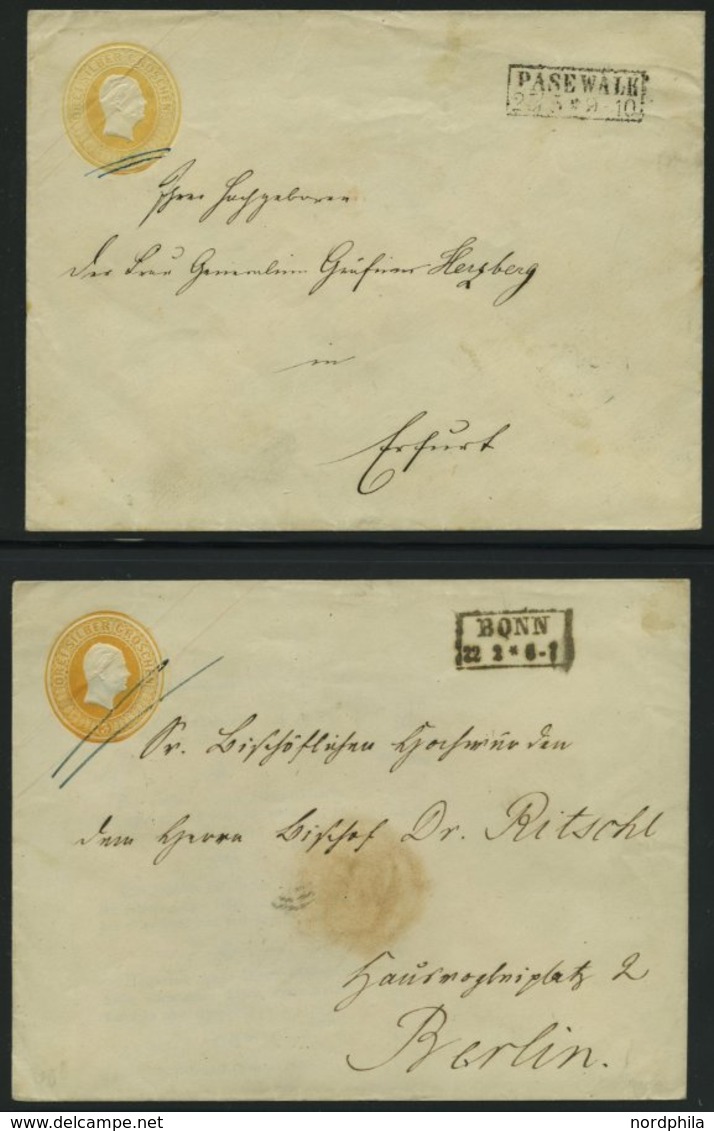 DREI SILBER GROSCHEN
PASEWALK
5 * 9-10
Ihrer Hochgeboren
der Frau Generalinn Gräfinn Herzberg
in
Erfurt
DREI SILBER GROSCHEN
BONN
22 2 * 6-7
Sr. Bischöflichen Hochwürden
dem Herrn Bischof Dr. Ritschl
Hausvogteiplatz 2
Berlin.
www.delcampe.net
nordphila